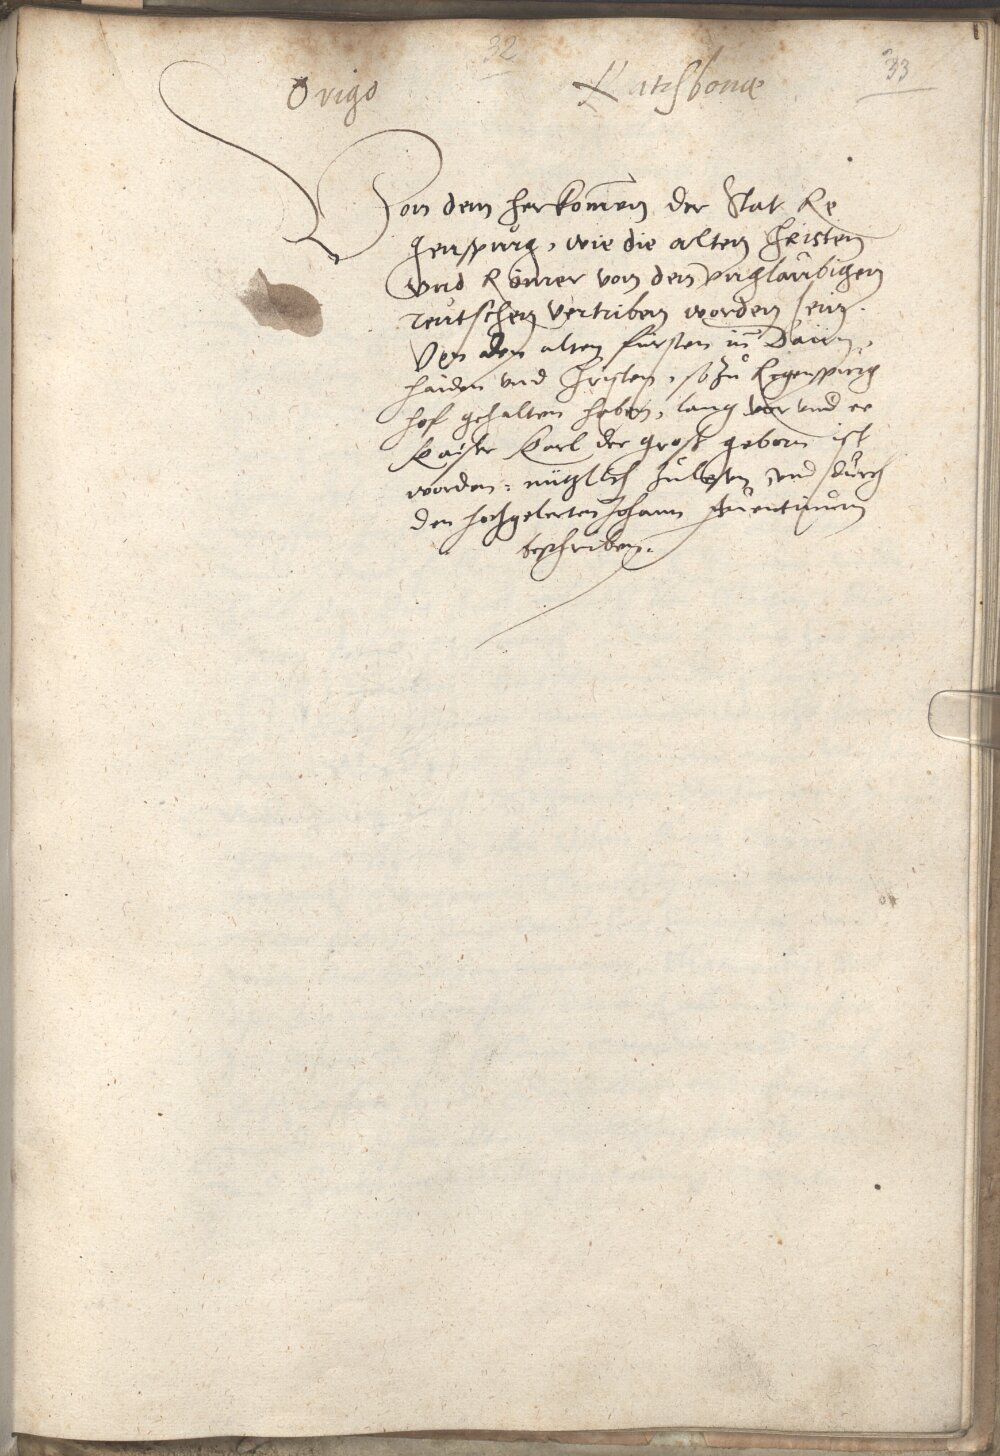 32
33
Origo Ratisbonæ
Von dem herkomen der Stat Re
genspurg, wie die alten Christen
vnd Römer von den vnglaubigen
teutschen vertriben worden sein.
Von den alten fürsten in Bairn,
haiden vnd Christen, so zu Regenspurg
hof gehalten haben, lang vor vnd ee
kaiser karl der gross geborn ist
worden: nützlich zulesen vnd durch
den hochgelerten Johann Auentinum
beschriben.